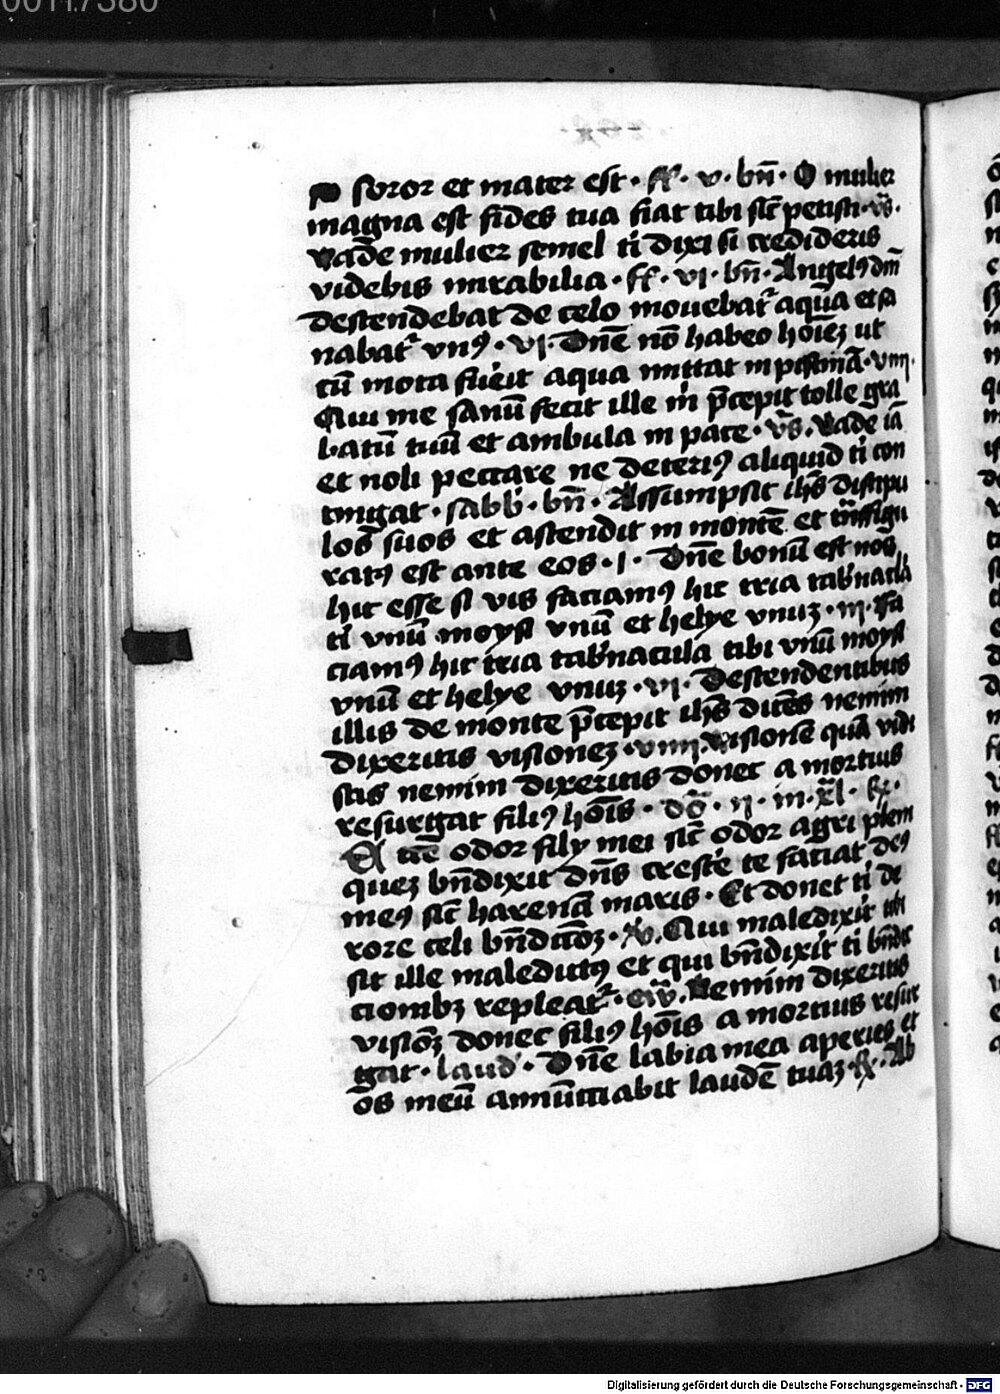 0011./380
soror et mater est · ff · v · bn̄ · O mulier
magna est fides tua fiat tibi sic̄ petisti · vs̄ ·
vade mulier semel ti dixi si credideris
videbis mirabilia · ff · vi · bn̄ · Angelꝯ dn̄i
descendebat de celo mouebat᷑ aqūa et sa
nabat᷑ vnꝯ · vi · Dn̄e nō habeo hoīeꝫ ut
cū mota fu̓it aqua mittat in piscinā · viiii ·
Qui me sanū fecit ille m̓ p̄cepit tolle gra
batū tuū et ambula in pace · vs̄ · vade iā
et noli peccare ne deteriꝯ aliquid ti con
tingat · sabb̓ · bn̄ · Assumpsit ih̄s discipu
los suos et ascendit in montē et tn̄sfigu
ratꝯ est ante eos · i · Dn̄e bonū est nos
hic esse si vis faciamꝯ hic tria tab̓nacl̓a
ti vnū moysi vnū et helye vnuꝫ · iii · Fa
ciamꝯ hic tria tab̓nacula tibi vnū moysi
vnū et helye vnuꝫ · vi · Descendentibus
illis de monte p̄cepit ih̄s dicēs nemini
dixeritis visioneꝫ · viiii · Visionē quā vidi
stis nemini dixeritis donec a mortuis
resurgat filiꝯ hoīs · do᷑ · ii · in · xl · R̄ ·
ecce odor filij mei sic̄ odor agri pleni
queꝫ bn̄dixit dn̄s cresce̓ te faciat deꝯ
meꝯ sic̄ harenā maris · Et donet ti de
rore celi bn̄dictōꝫ · v̓ · Qui maledixit tibi
sit ille maledictꝯ et qui bn̄dixit ti bn̄dic
tionibꝫ repleat᷑ · ev̄ · Nemini dixeritis
visiōꝫ donec filiꝯ hoīs a mortuis resur
gat · laud̓ · Dn̄e labia mea aperies et
os meū annūtiabit laudē tuaꝫ · R̄ · Ab
Digitalisierung gefördert durch die Deutsche Forschungsgemeinschaft - DFG